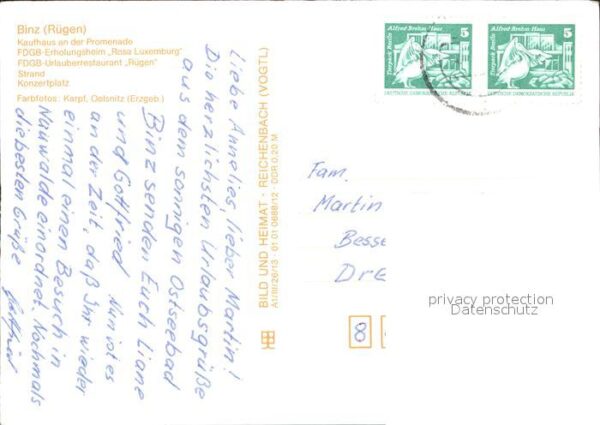 Binz (Rügen)
Kaufhaus an der Promenade
FDGB-Erholungsheim „Rosa Luxemburg"
FDGB-Urlauberrestaurant „Rügen"
Strand
Konzertplatz
Farbfotos: Karpf, Oelsnitz (Erzgeb.)
Liebe Annelies, lieber Martin!
Die herzlichsten Urlaubsgrüße
aus dem sonnigen Ostseebad
Binz senden Euch Liane
und Gottfried. Nun ist es
an der Zeit, daß Ihr wieder
einmal einen Besuch in
Naüwalde einordnet. Nochmals
die besten Grüße Gottfried
BILD UND HEIMAT · REICHENBACH (VOGTL)
A1/III/26/13 · 01 01 0688/12 · DDR 0,20 M
Alfred Brehm-Haus
Tierpark Berlin
5
DEUTSCHE DEMOKRATISCHE REPUBLIK
Alfred Brehm-Haus
Tierpark Berlin
5
DEUTSCHE DEMOKRATISCHE REPUBLIK
Fam.
Martin
Besse
Dre
8
privacy protection
Datenschutz